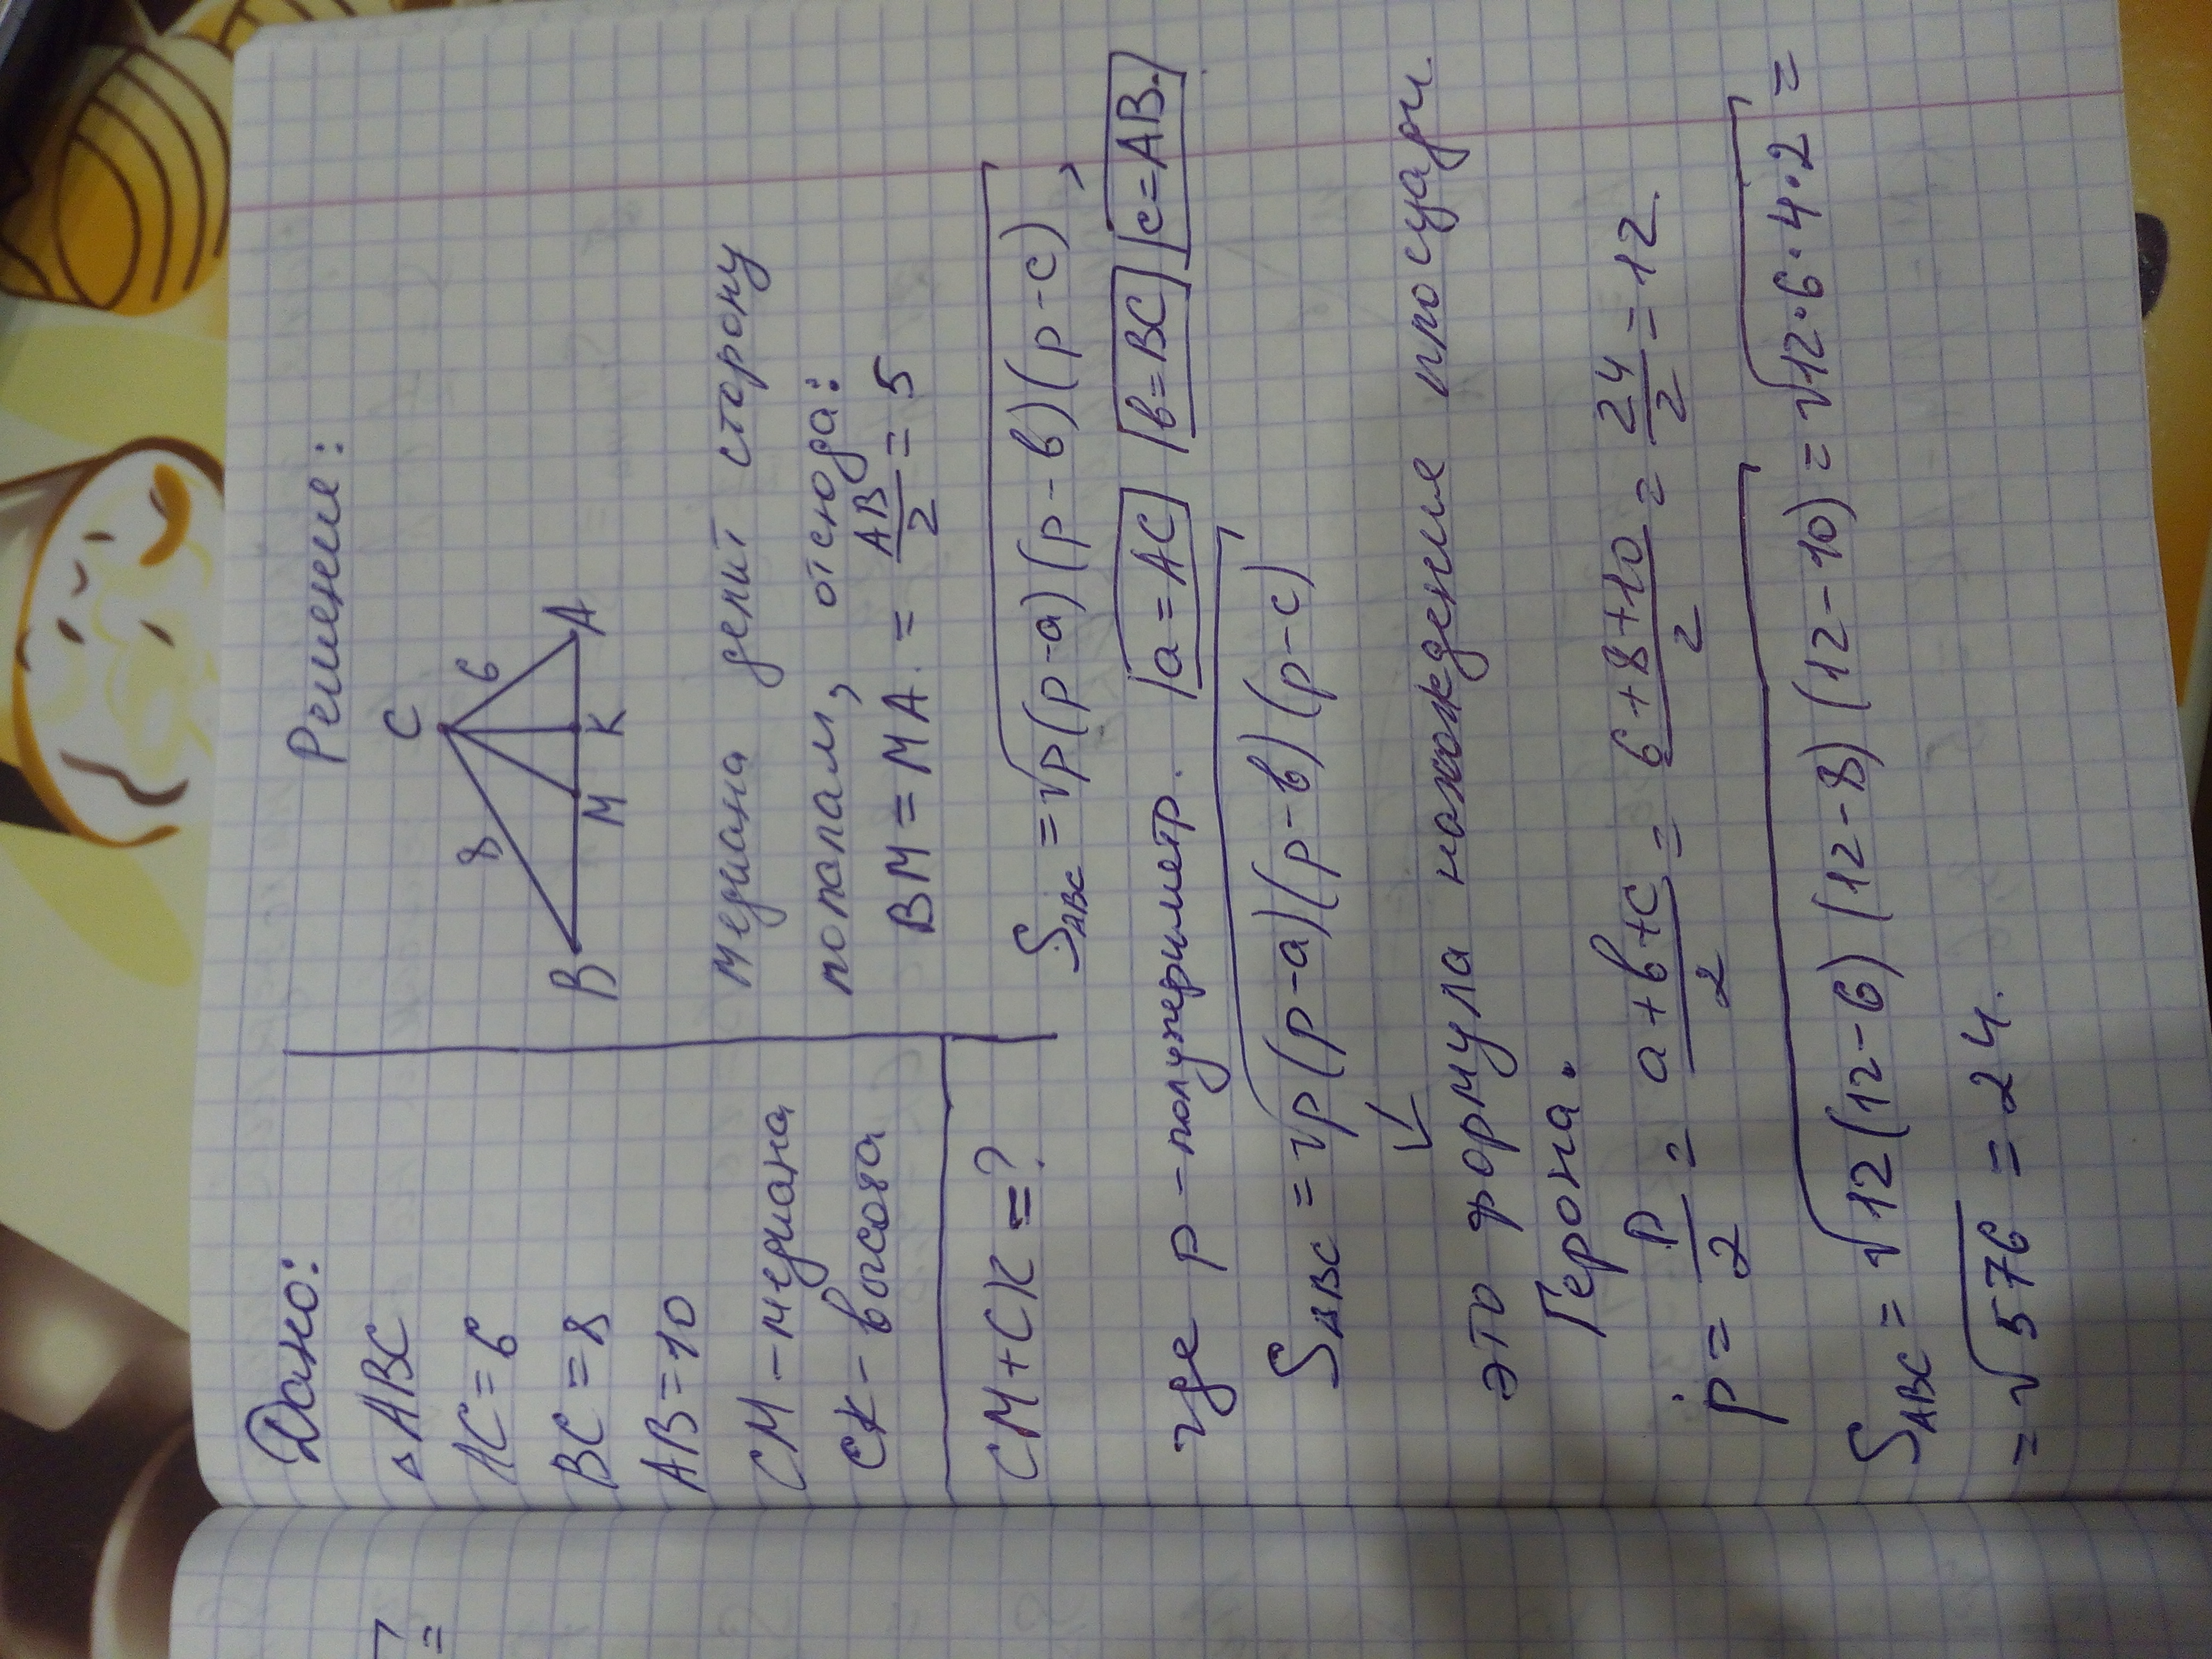 Дано:
△ ABC
AC = 6
BC = 8
AB = 10
CM – медиана
CK – высота
CM + CK = ?
Решение:
C
8
6
B
M
K
A
медиана делит сторону
пополам, отсюда:
BM = MA = AB/2 = 5
S_ABC = √p(p-a)(p-в)(p-c) ,
где p – полупериметр. |a = AC| |в = BC| |c = AB.|
S_ABC = √p(p-a)(p-в)(p-c)
↓
это формула нахождения площади
Герона.
p = P/2 = a+в+c/2 = 6+8+10/2 = 24/2 = 12.
S_ABC = √12(12-6)(12-8)(12-10) = √12·6·4·2 =
= √576 = 24.
=